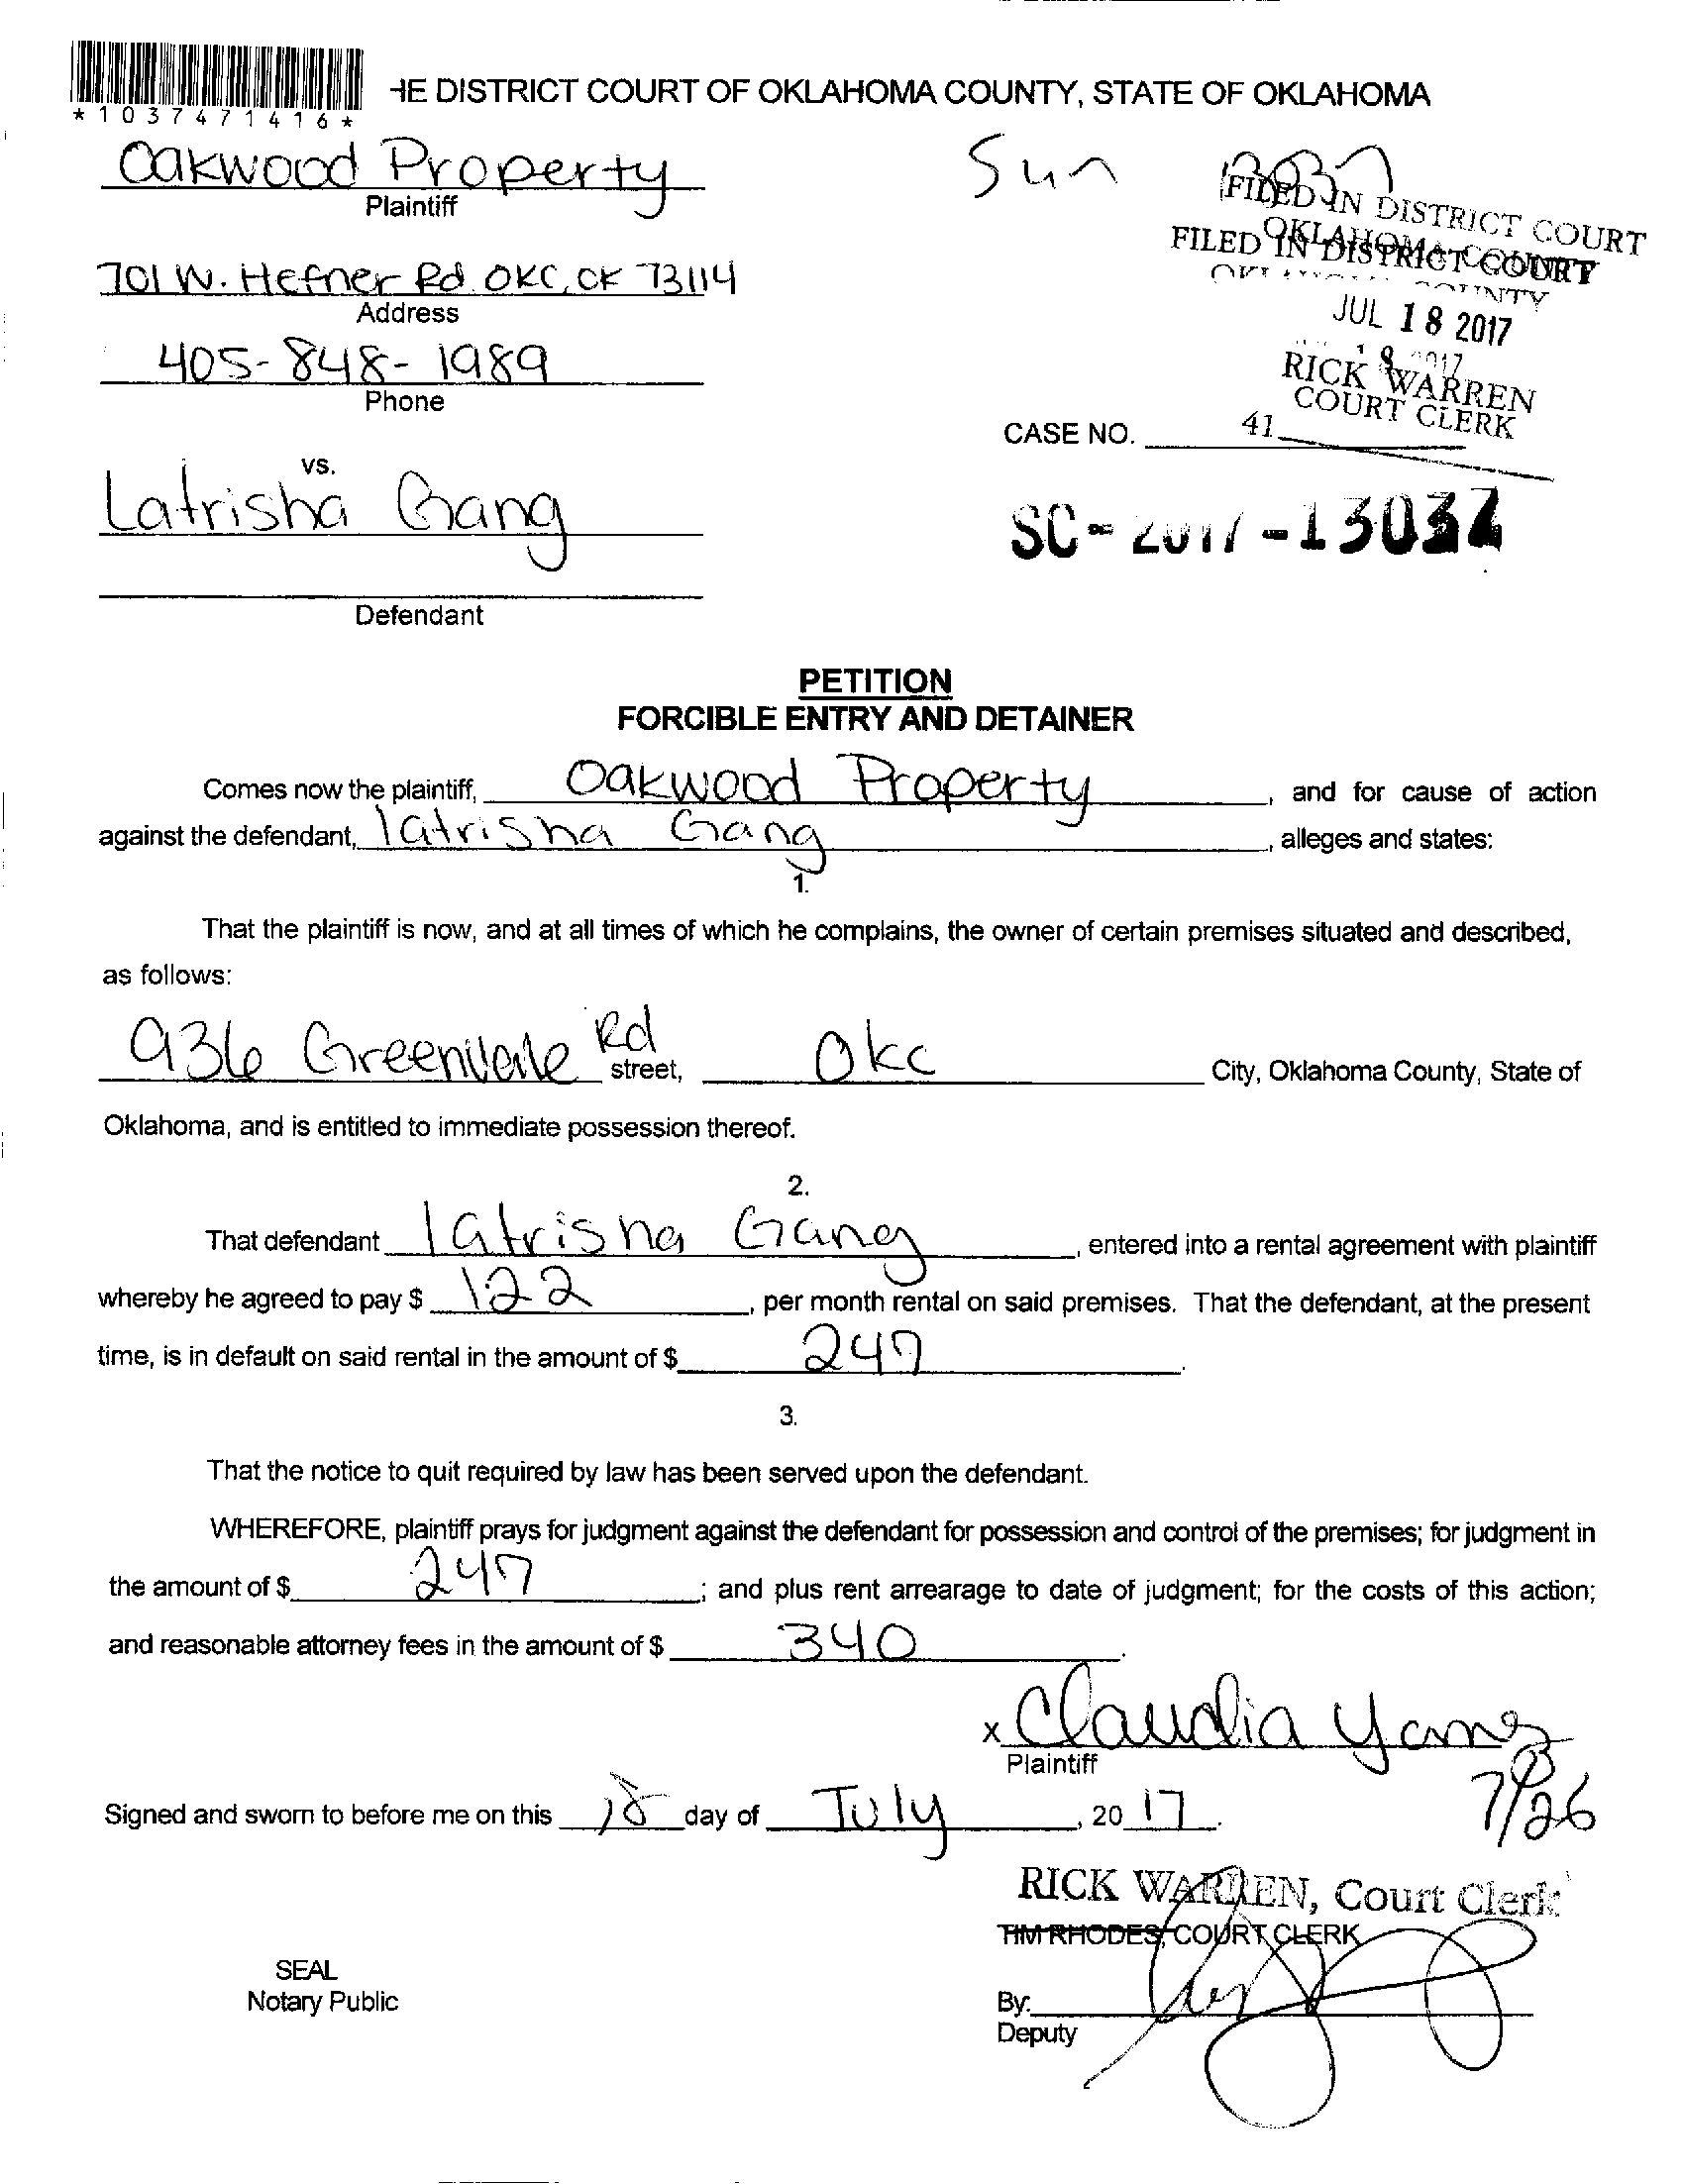 *1037471416*
HE DISTRICT COURT OF OKLAHOMA COUNTY, STATE OF OKLAHOMA
Oakwood Property
Plaintiff
Sun
FILED IN DISTRICT COURT
OKLAHOMA COUNTY
FILED IN DISTRICT COURT
COUNTY
701 W. Hefner Rd. OKC, OK 73114
Address
JUL 18 2017
RICK WARREN
COURT CLERK
405-848-1989
Phone
CASE NO.
41
vs.
Latrisha Gang
SC-2017-
Defendant
PETITION
FORCIBLE ENTRY AND DETAINER
Comes now the plaintiff, Oakwood Property, and for cause of action
against the defendant, latrisha Gang, alleges and states:
1.
That the plaintiff is now, and at all times of which he complains, the owner of certain premises situated and described,
as follows:
936 Rd street, Okc City, Oklahoma County, State of
Oklahoma, and is entitled to immediate possession thereof.
2.
That defendant latrisha Gang, entered into a rental agreement with plaintiff
whereby he agreed to pay $ 122, per month rental on said premises. That the defendant, at the present
time, is in default on said rental in the amount of $ 247.
3.
That the notice to quit required by law has been served upon the defendant.
WHEREFORE, plaintiff prays for judgment against the defendant for possession and control of the premises; for judgment in
the amount of $ 247; and plus rent arrearage to date of judgment; for the costs of this action;
and reasonable attorney fees in the amount of $ 340.
x Claudia
Plaintiff
7/26
Signed and sworn to before me on this 18 day of July, 20 17.
RICK WARREN, Court Clerk
TIM RHODES, COURT CLERK
SEAL
Notary Public
By:
Deputy